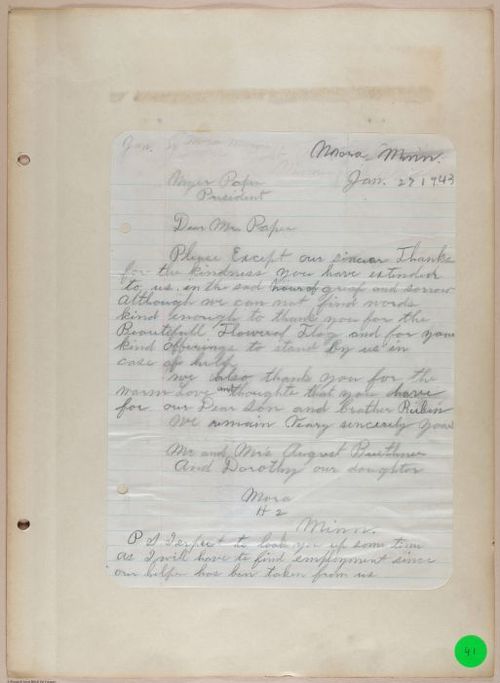 Mora, Minn.
Jan. 29 1943
Myer Paper
President
Dear Mr. Paper
Please Except our sincear Thanks
for the kindness you have extended
to us. in the sad hour of grief and sorrow
Although we can not find words
kind enough to thank you for the
Beautefull Flowered Flag and for your
kind offerings to stand by us in
case of help.
we also thank you for the
warm Love and thoughts that you have
for our Dear Son and brother Rubin
We remain Veary sincerly yours
Mr and Mrs August
And Dorothy our doughter
Mora
# 2
Minn.
P S I expect to look you up some time
as I will have to find employment since
our helper has ben taken from us
41